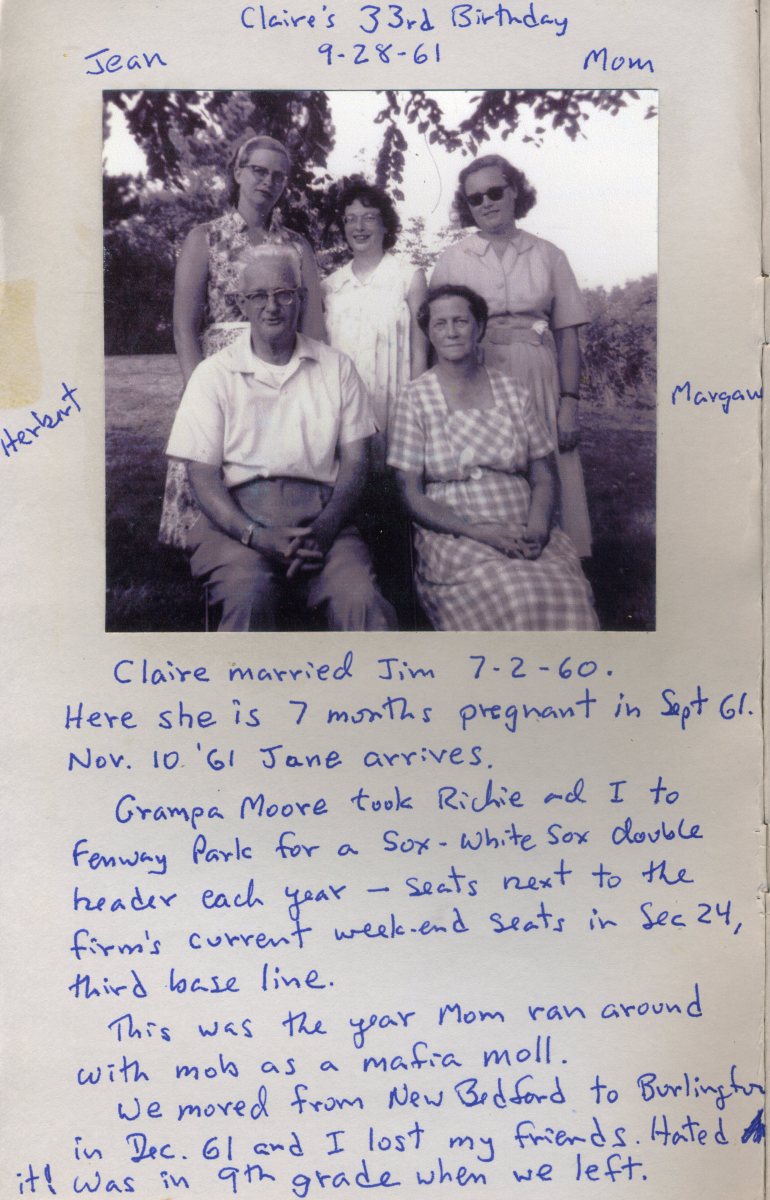 Claire's 33rd Birthday
9-28-61
Jean
Mom
Herbert
Margaw
Claire married Jim 7-2-60.
Here she is 7 months pregnant in Sept 61.
Nov. 10 '61 Jane arrives.
Grampa Moore took Richie and I to
Fenway Park for a Sox-White Sox double
header each year — seats next to the
firm's current week-end seats in Sec 24,
third base line.
This was the year Mom ran around
with mob as a mafia moll.
We moved from New Bedford to Burlington
in Dec. 61 and I lost my friends. Hated
it! Was in 9th grade when we left.